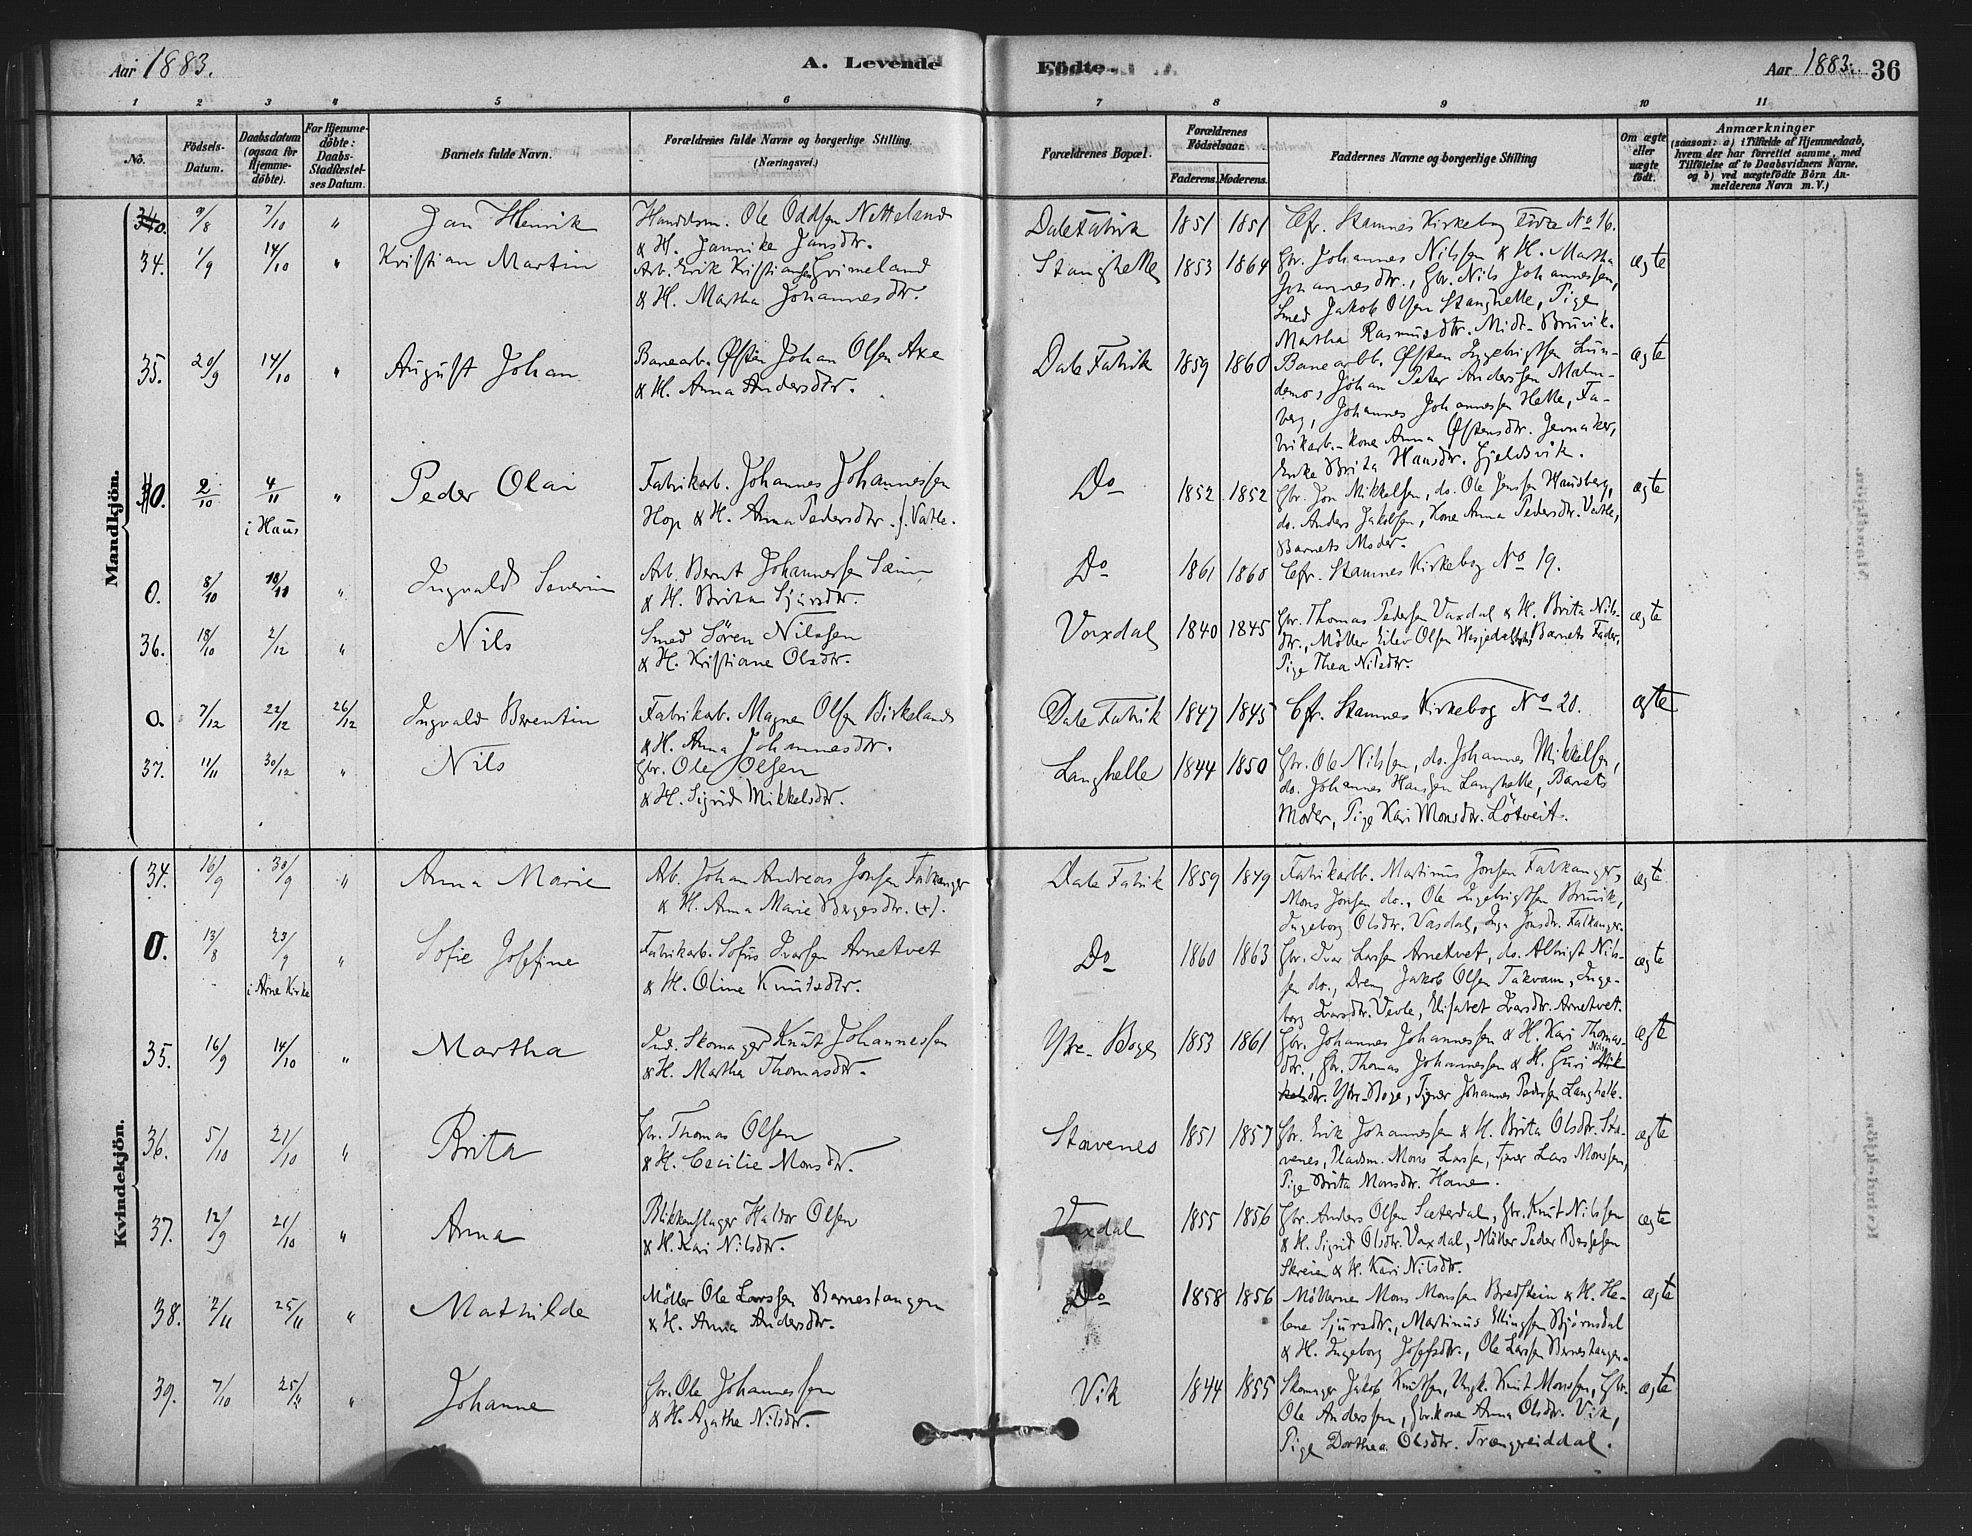 Aar 1883.
A. Levende
Födte.
Aar 1883. 36
1 2 3 4 5 6 7 8 9 10 11
No.
Födsels-
Datum.
Daabsdatum
(ogsaa for
Hjemme-
döbte).
For Hjemme-
döbte:
Daabs-
Stadfæstel-
ses Datum.
Barnets fulde Navn.
Forældrenes fulde Navne og borgerlige Stilling.
(Næringsvei.)
Forældrenes Bopæl.
Forældrenes
Födselsaar.
Faderens. Moderens.
Faddernes Navne og borgerlige Stilling
Om ægte
eller
uægte
födt.
Anmærkninger
(saasom: a) i Tilfælde af Hjemmedaab,
hvem der har forrettet samme, med
Tilföielse af to Daabsvidners Navne,
og b) ved uægtefödte Börn An-
melderens Navn m. V.)
Mandkjön.
0. 9/8 7/10 " Jan Henrik
Handelsm. Ole Oddsen Netteland
& H. Jannike Jansdtr.
Dale Fabrik 1851 1851
Cfr. Stamnes Kirkebog Födte No 16.
34. 1/9 14/10 " Kristian Martin
Arb. Erik Kristiansen Grimeland
& H. Martha Johannesdtr.
Stanghelle 1853 1864
Gbr. Johannes Nilssen & H. Martha
Johannesdtr., Gbr. Nils Johannessen,
Smed Jakob Olsen Stanghelle, Pige
Martha Rasmusdtr. Midt-Bruvik.
ægte
35. 20/9 14/10 " August Johan
Banearb. Østen Johan Olsen Axe
& H. Anna Andersdtr.
Dale Fabrik 1859 1860
Banearbb. Østen Ingebrigtsen Lun-
demo, Johan Peter Anderssen Malm-
berg, Johannes Johannessen Helle, Fa-
brikarb.-kone Anna Østensdtr. Jevnaker,
Enke Brita Hansdtr. Gjeldsvik.
ægte
0. 2/10 4/11 " Peder Olai
i Haus
Fabrikarb. Johannes Johannessen
Hop & H. Anna Pedersdtr. f. Vatle.
Do 1852 1852
Gbr. Jon Mikkelsen, do. Ole Jonssen Hausberg,
do. Anders Jakobsen, Kone Anna Pedersdtr. Vatle,
Barnets Moder.
ægte
0. 8/10 18/11 " Ingvald Severin
Arb. Bernt Johannessen Sæim
& H. Brita Sjursdtr.
Do 1861 1860
Cfr. Stamnes Kirkebog No 19.
36. 18/10 2/12 " Nils
Smed Sören Nilssen
& H. Kristiane Olsdtr.
Vaxdal 1840 1845
Gbr. Thomas Pedersen Vaxdal & H. Brita Nils-
dtr., Möller Eilev Olsen Hesjedal, Barnets Fader,
Pige Thea Nilsdtr.
ægte
0. 7/12 22/12 26/12 Ingvald Berentin
Fabrikarb. Magne Olsen Birkeland
& H. Anna Johannesdtr.
Dale Fabrik 1847 1845
Cfr. Stamnes Kirkebog No 20.
ægte
37. 11/11 30/12 " Nils
Gbr. Ole Olsen
& H. Sigrid Mikkelsdtr.
Langhelle 1844 1850
Gbr. Ole Nilssen, do. Johannes Mikkelsen,
do. Johannes Hansen Langhelle, Barnets
Moder, Pige Kari Monsdtr. Lötveit.
Kvindekjön.
34. 16/9 30/9 " Anna Marie
Arb. Johan Andreas Jonsen Falkanger
& H. Anna Marie Børgesdtr. (+).
Dale Fabrik 1859 1849
Fabrikarbb. Martinus Jonsen Falkanger,
Mons Jonsen do., Ole Ingebrigtsen Bruvik,
Ingeborg Olsdtr. Vaxdal, Inga Jonsdtr. Falkanger.
ægte
0. 13/8 23/9 " Sofie Josefine
i Arne Kirke
Fabrikarb. Sofus Ivarsen Arnetvet
& H. Oline Knutsdtr.
Do 1860 1863
Gbr. Ivar Larssen Arnetvet, do. Albrigt Nils-
sen do., Dreng Jakob Olsen Takvam, Inge-
borg Ivarsdtr. Vevle, Elisabet Ivarsdtr. Arnetvet.
ægte
35. 16/9 14/10 " Martha
Ind. Skomager Knut Johannessen
& H. Martha Thomasdtr.
Ytre-Boge 1853 1861
Gbr. Johannes Johannessen & H. Kari Thomas-
dtr., Gbr. Thomas Johannessen & H. Guri Nils
dtr. Ytre-Boge, Tjener Johannes Pedersen Langhelle.
ægte
36. 5/10 21/10 " Brita
Gbr. Thomas Olsen
& H. Cecilie Monsdtr.
Stavenes 1851 1857
Gbr. Erik Johannessen & H. Brita Olsdtr. Sta-
venes, Pladsm. Mons Larssen, Tjener Lars Monssen,
Pige Brita Monsdtr. Hane.
ægte
37. 12/9 21/10 " Anna
Blikkenslager Haldor Olsen
& H. Kari Nilsdtr.
Vaxdal 1855 1856
Gbr. Anders Olsen Sæterdal, Gbr. Knut Nilssen
& H. Sigrid Olsdtr. Vaxdal, Möller Peder Børgesen
Skreien & H. Kari Nilsdtr.
ægte
38. 2/11 25/11 " Mathilde
Möller Ole Larssen Bernestangen
& H. Anna Andersdtr.
Do 1858 1856
Möllerne Mons Monssen Bredstein & H. He-
lene Sjursdtr., Martinus Ellingsen Bjørnsdal
& H. Ingeborg Josefsdtr., Ole Larssen Bernestangen.
ægte
39. 7/10 25/11 " Johanne
Gbr. Ole Johannessen
& H. Agathe Nilsdtr.
Vik 1844 1855
Skomager Jakob Knutsen, Ungk. Knut Monssen, Gbr.
Ole Anderssen, Gbr.kone Anna Olsdtr. Vik,
Pige Dorthea Olsdtr. Trængereiddal.
ægte